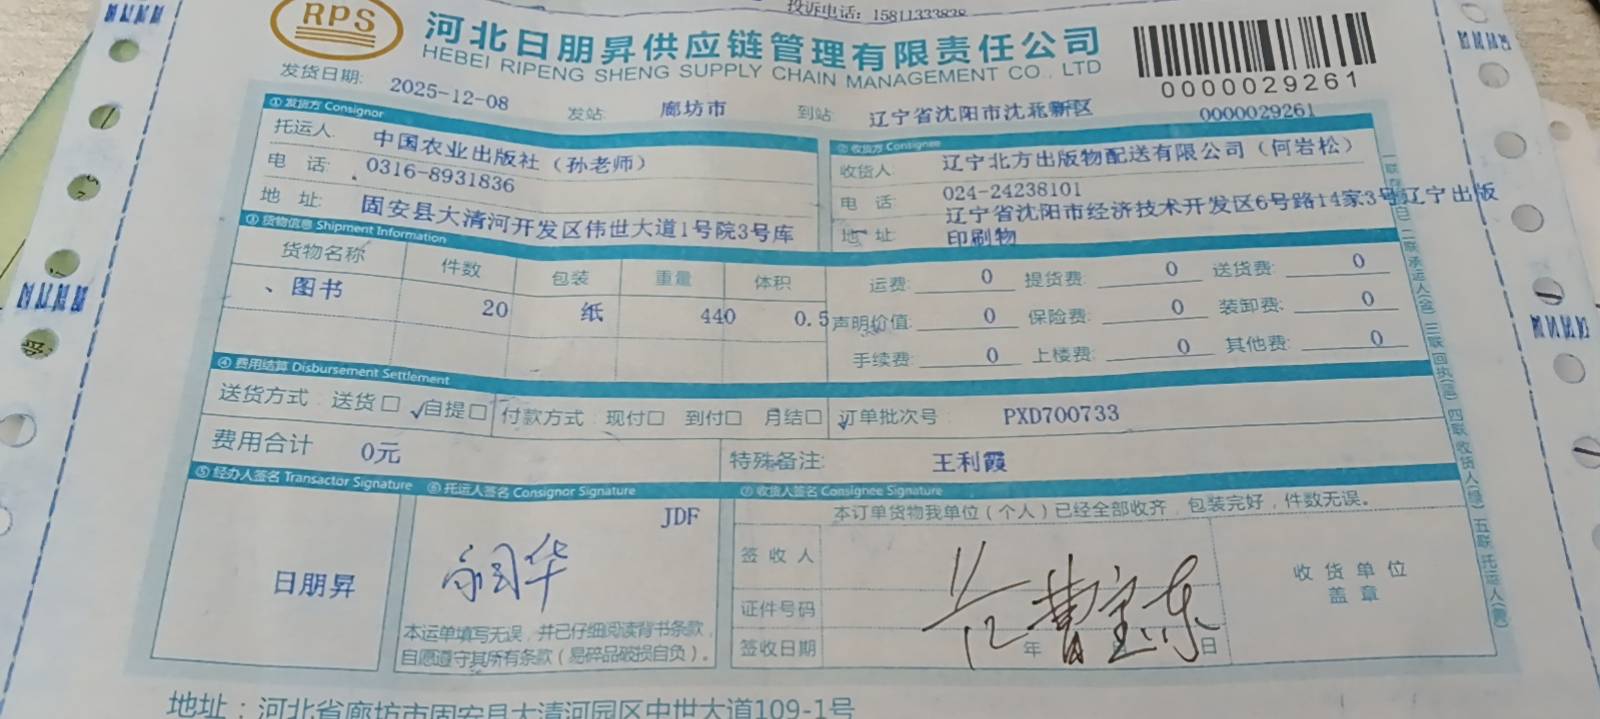 投诉电话：15811333838
RPS
河北日朋昇供应链管理有限责任公司
HEBEI RIPENG SHENG SUPPLY CHAIN MANAGEMENT CO., LTD
0000029261
发货日期: 2025-12-08 发站 廊坊市 到站 辽宁省沈阳市沈北新区 0000029261
① 发货方 Consignor
托运人: 中国农业出版社（孙老师）
电 话: 0316-8931836
地 址: 固安县大清河开发区伟世大道1号院3号库
② 收货方 Consignee
收货人: 辽宁北方出版物配送有限公司（何岩松）
电 话 024-24238101
地 址 辽宁省沈阳市经济技术开发区6号路14家3号辽宁出版
印刷物
③ 货物信息 Shipment Information
货物名称 件数 包装 重量 体积
、图书 20 纸 440 0.5
运费: 0 提货费: 0 送货费: 0
声明价值: 0 保险费: 0 装卸费: 0
手续费: 0 上楼费: 0 其他费: 0
④ 费用结算 Disbursement Settlement
送货方式: 送货□ √自提□ 付款方式: 现付□ 到付□ 月结□ 订单批次号 PXD700733
费用合计 0元 特殊备注: 王利霞
⑤ 经办人签名 Transactor Signature
日朋昇
⑥ 托运人签名 Consignor Signature
JDF
本运单填写无误，并已仔细阅读背书条款，
自愿遵守其所有条款（易碎品破损自负）。
⑦ 收货人签名 Consignee Signature
本订单货物我单位（个人）已经全部收齐，包装完好，件数无误。
签 收 人
证件号码
签收日期 年 日
收 货 单 位
盖 章
二联承运人 三联回执 四联 收货人 五联 托运人
地址：河北省廊坊市固安县大清河园区中世大道109-1号